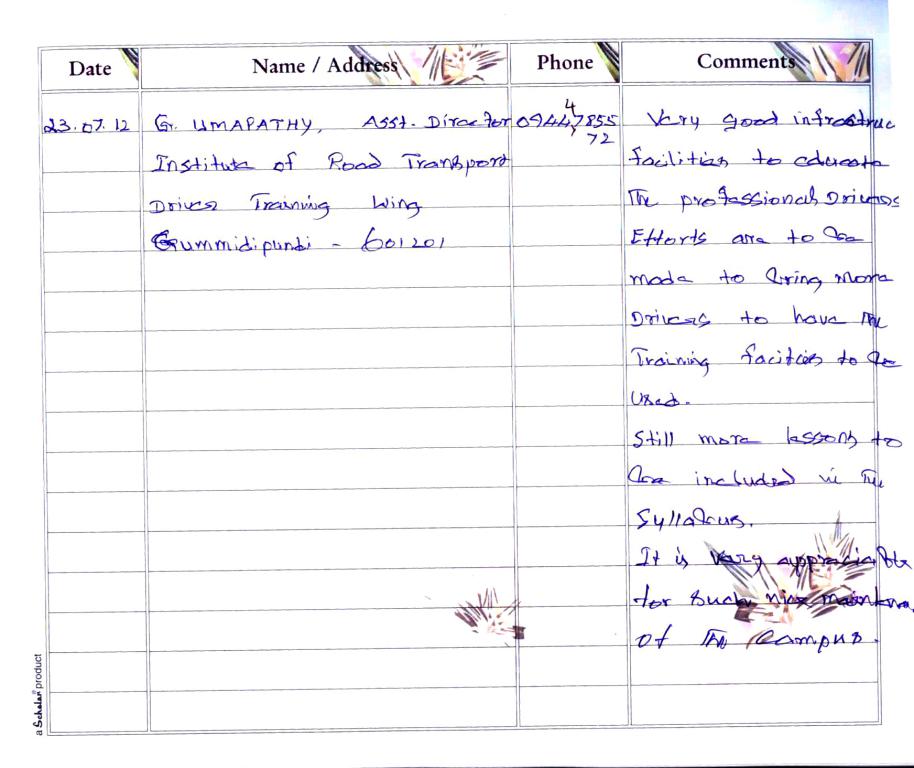 Date Name / Address Phone Comments
23.07.12 G. UMAPATHY, Asst. Director 09447855 Very good infrastruc
4
72
Institute of Road Transport facilities to educate
Driver Training Wing The professional Drivers
Gummidipundi - 601201 Efforts are to be
made to bring more
Drivers to have the
Training facities to be
used.
Still more lessons to
be included in the
Syllabus.
It is very appreciable
for such nice
of the Campus.
a Scholar product